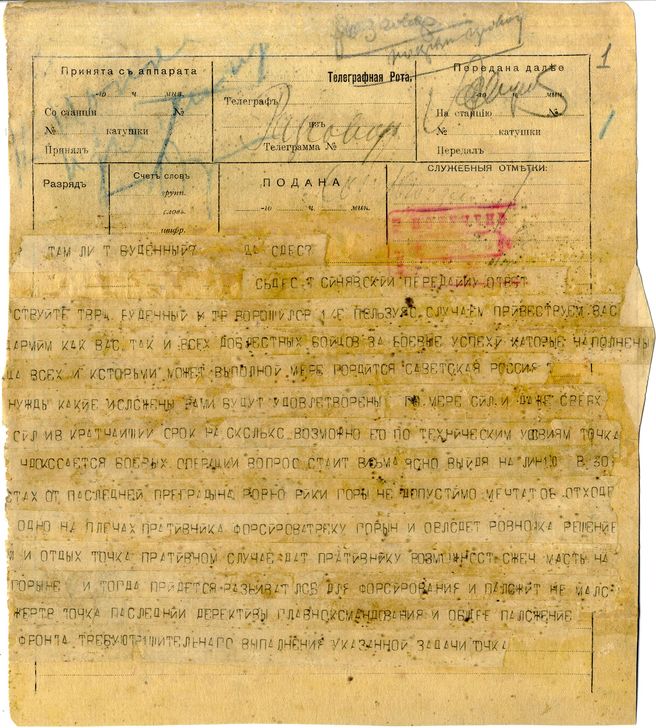 1
Принята съ аппарата
Телеграфная Рота.
Передана далѣе
-го ч. мин.
-го ч. мин.
Со станціи №
Телеграфъ
На станцію №
№ катушки
изъ
№ катушки
Разговор
Принялъ
Телеграмма №
Передалъ
Разрядъ
Счетъ словъ
ПОДАНА
СЛУЖЕБНЫЯ ОТМѢТКИ:
групп.
-го ч. мин.
словъ.
цифр.
ТАМ ЛИ Т БУДЕННЫЙ? ДА СДЕС?
СЬДЕС Т СИНЯВСКИЙ ПЕРЕДАЙМУ ОТВЯТ
СТВУЙТЕ ТВРЩ БУДЕННЫЙ И ТР ВОРОШИЛОВ ПОЛЬЗУЯС СЛУЧАЕМ ПРИВЕСТРУЕМ ВАС
ДАРМИМ КАК ВАС ТАК И ВСЕХ ДОБЛЕСТНЫХ БОЙЦОВ ЗА БОЕВЫЕ УСПЕХИ КАТОРЫЕ НАПОЛНЕНЫ
ЦА ВСЕХ И КСТОРЫМИ МОЖЕТ ВЫПОЛНОЙ МЕРЕ ГОРДИТСЯ САВЕТСКАЯ РОССИЯ Т
НУЖДЫ КАКИЕ ИСЛОЖЕНЫ ВАМИ БУДУТ УДОВЛЕТВОРЕНЫ ПО МЕРЕ СИЛ И ДАЖЕ СВЕБХ
СИЛ ИВ КРАТЧАЙШИЙ СРОК НА СКОЛЬКО ВОЗМОЖНО ЕГО ПО ТЕХНИЧЕСКИМ УШВИЯМ ТОЧКА
ЧДОКССАЕТСЯ БОЕВЫХ ОПЕРАЦИИ ВОПРОС СТАИТ ВЕЗЬМА ЯСНО ВЫЙДЯ НА ЛИНІЮ В 30
СТАХ ОТ ПАСЛЕДНЕЙ ПРЕГРАДЫНА РОВНО РИКИ ГОРЫ НЕ ДОПУСТИМО МЕЧТАТ ОБ ОТХОДЕ
ОДНО НА ПЛЕЧАХ ПРАТИВНИКА ФОРСИРОВАТРЕКУ ГОРЫН И ОВЛЕДЕТ РОВНОКА РЕШЕНИЕ
И ОТДЫХ ТОЧКА ПРАТИВНОМ СЛУЧАЕ ДАТ ПРАТИВНИКУ ВОЗМОЖНОСТ СЖЕЧ МАСТЫ НА
ГОРЫНЕ И ТОГДА ПРИДЕТСЯ РАЗБИВАТ ЛОБ ДЛЯ ФОРСИРОВАНИЯ И ПАЛОЖИТ НЕ МАЛО
ЖЕРТВ ТОЧКА ПАСЛЕДНИЙ ДЕРЕКТИВЫ ГЛАВНОКСМАНДОВАНИЯ И ОБЩЕЕ ПАЛОЖЕНИЕ
ФРОНТА ТРЕБУЮТРЕШИТЕЛЬНАГО ВЫПАЛНЕНИЯ УКАЗАННОЙ ЗАДАЧИ ТОЧКА